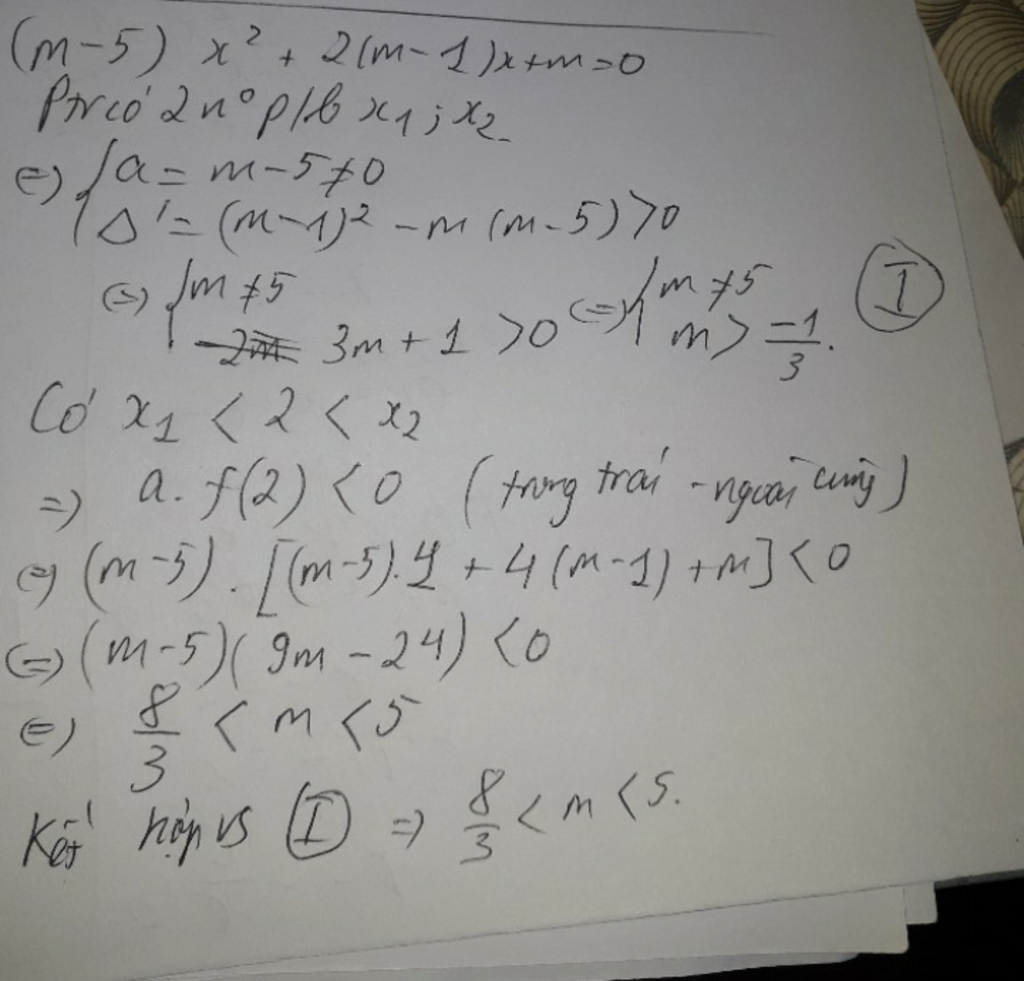 (m-5) x² + 2(m-1)x+m=0
Ptr có 2 n° p/b x₁; x₂
⇔ { a = m-5≠0
Δ' = (m-1)² - m (m-5) >0
⇔ { m ≠ 5
3m + 1 > 0 ⇔ { m ≠ 5
m > -1/3. (I)
Có x₁ < 2 < x₂
⇒ a. f(2) < 0 (trong trái - ngoài cùng)
⇔ (m-5). [(m-5).4 + 4(m-1) +m] < 0
⇔ (m-5)( 9m - 24) < 0
⇔ 8/3 < m < 5
Kết hợp vs (I) ⇒ 8/3 < m < 5.